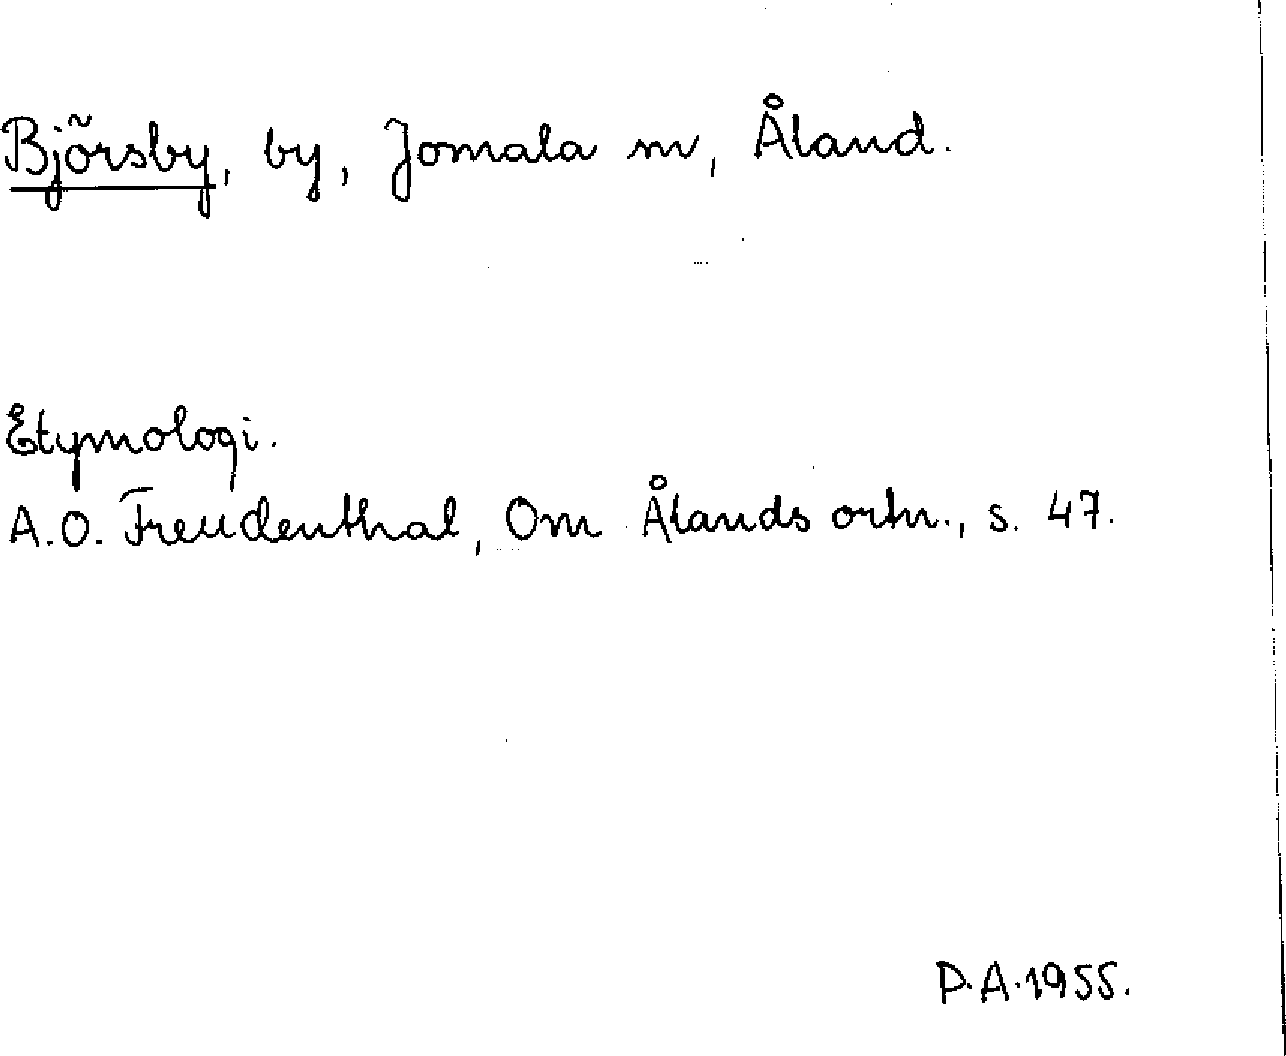 Björsby, by, Jomala m, Åland.
Etymologi.
A.O. Freudenthal, Om Ålands ortn., s. 47.
P.A.1955.